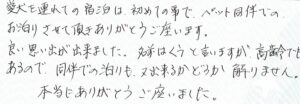 愛犬を連れての宿泊は、初めての事で、ペット同伴での
お泊りさせて頂きありがとうございます。
良い思い出が出来ました。名前はくうと言いますが高齢でも
あるので、同伴での泊りも又出来るかどうか解りません。
本当にありがとうございました。